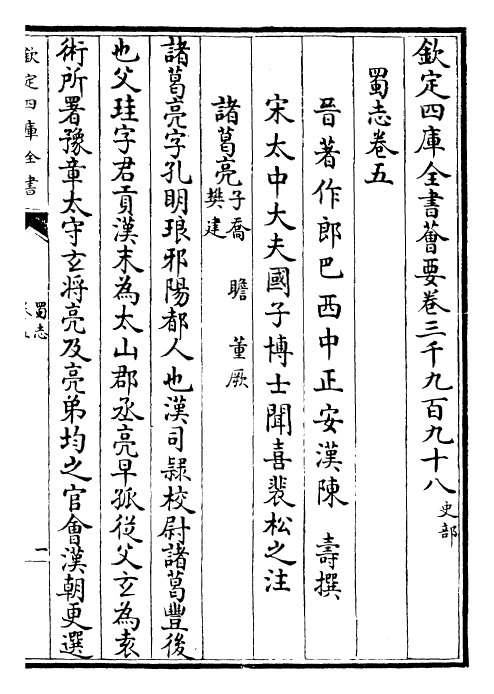 欽定四庫全書薈要卷三千九百九十八 史部
蜀志卷五
晉著作郎巴西中正安漢陳 壽撰
宋太中大夫國子博士聞喜裴松之注
諸葛亮 子喬 瞻 董厥
樊建
諸葛亮字孔明琅邪陽都人也漢司隸校尉諸葛豐後
也父珪字君貢漢末為太山郡丞亮早孤從父玄為袁
術所署豫章太守玄將亮及亮弟均之官會漢朝更選
欽定四庫全書
蜀志
一